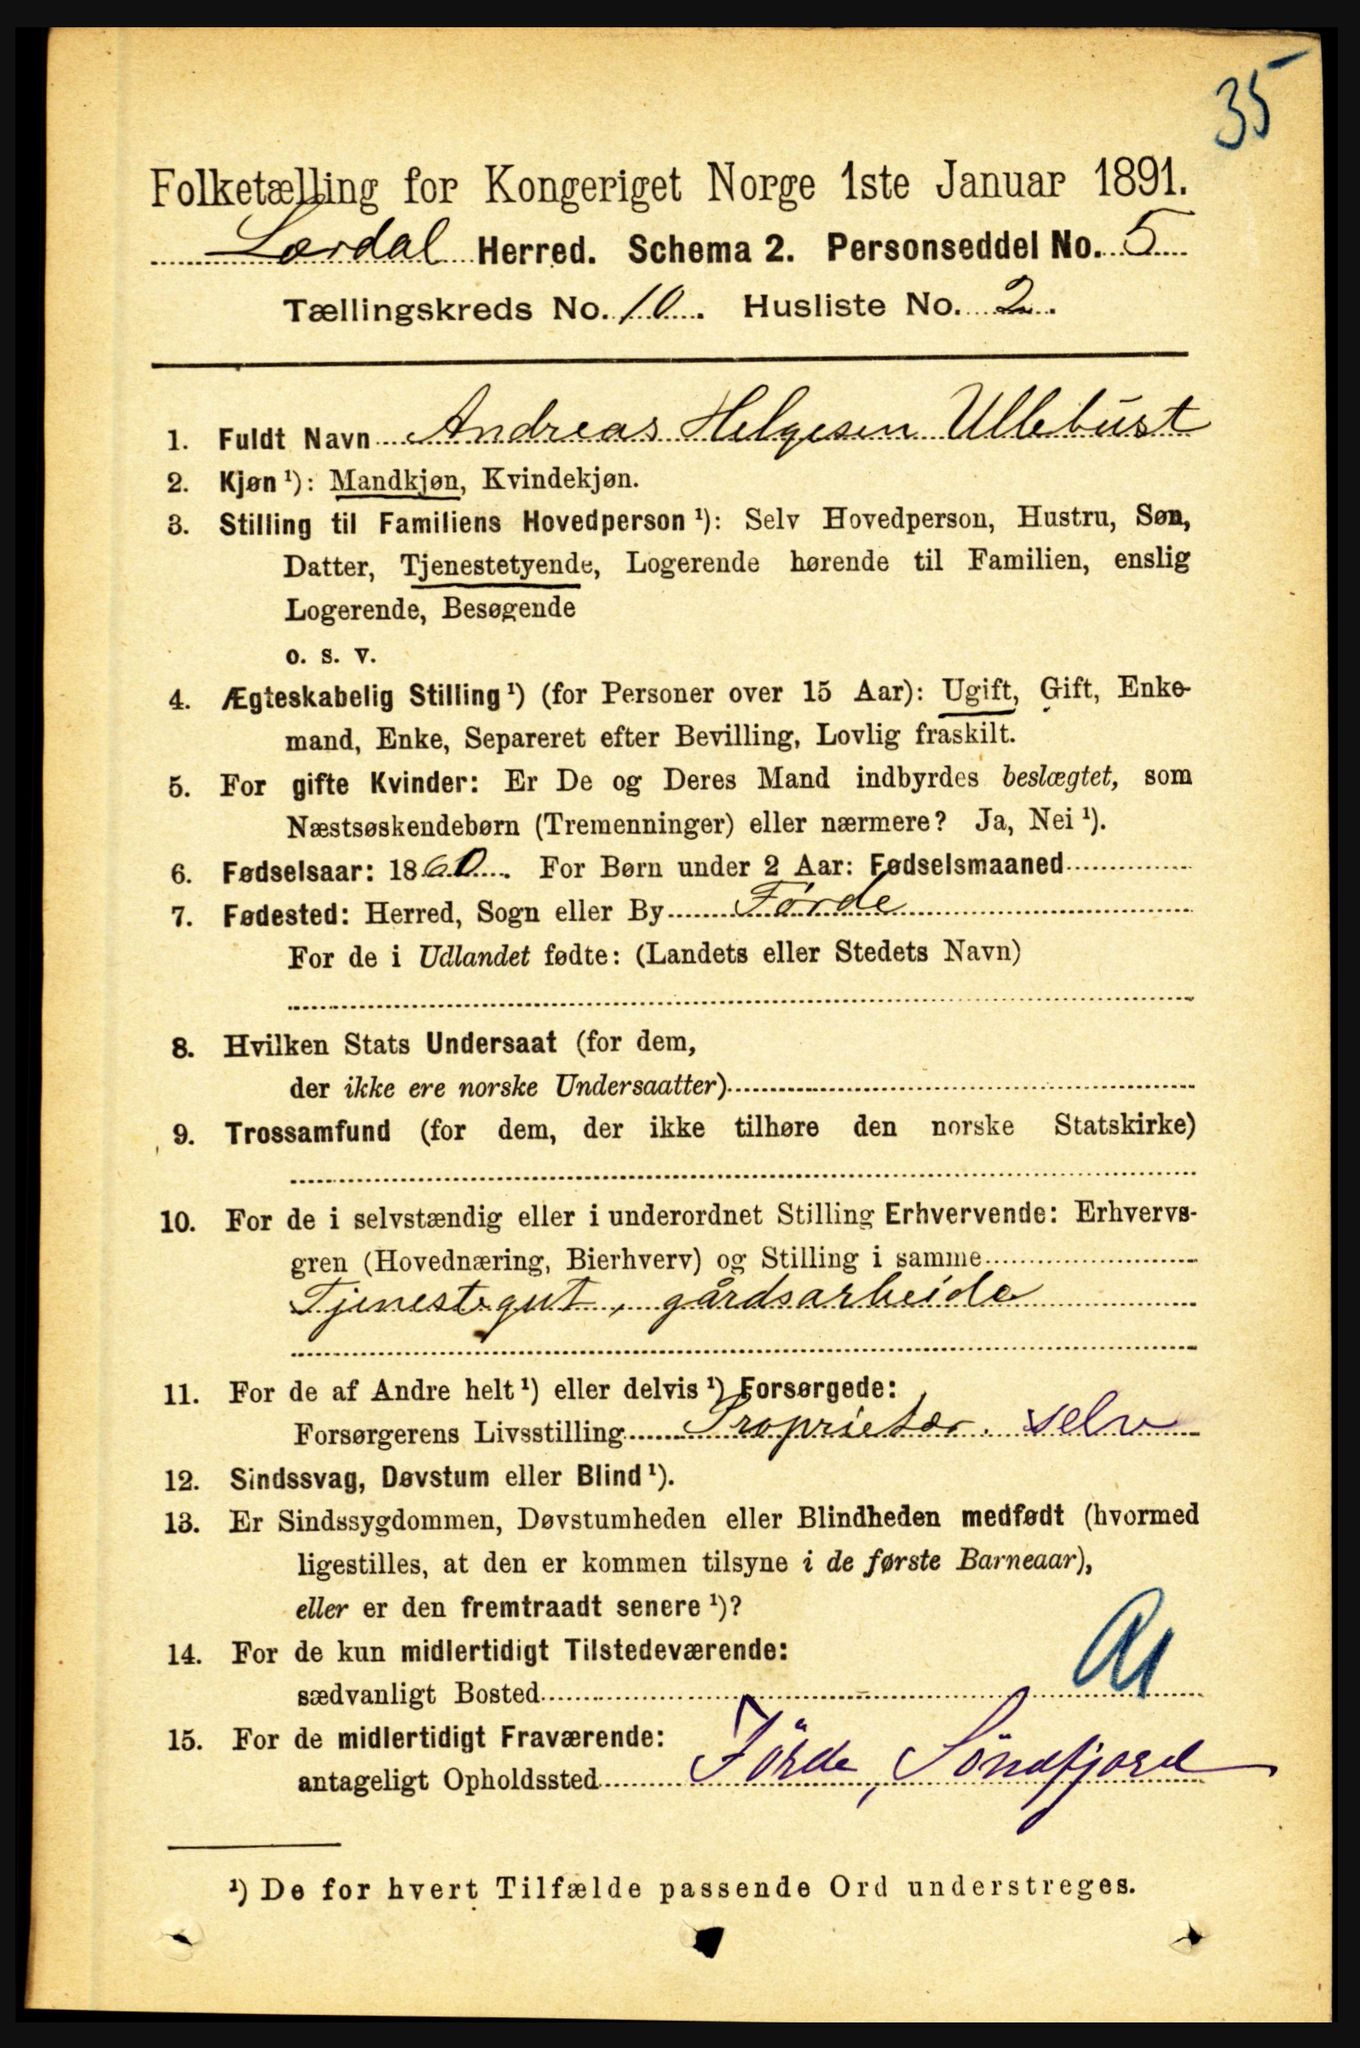 35
Folketælling for Kongeriget Norge 1ste Januar 1891.
Lærdal Herred. Schema 2. Personseddel No. 5
Tællingskreds No. 10. Husliste No. 2.
1. Fuldt Navn Andreas Helgesen Ullebust
2. Kjøn ¹): Mandkjøn, Kvindekjøn.
3. Stilling til Familiens Hovedperson ¹): Selv Hovedperson, Hustru, Søn,
Datter, Tjenestetyende, Logerende hørende til Familien, enslig
Logerende, Besøgende
o. s. v.
4. Ægteskabelig Stilling ¹) (for Personer over 15 Aar): Ugift, Gift, Enke-
mand, Enke, Separeret efter Bevilling, Lovlig fraskilt.
5. For gifte Kvinder: Er De og Deres Mand indbyrdes beslægtet, som
Næstsøskendebørn (Tremenninger) eller nærmere? Ja, Nei ¹).
6. Fødselsaar: 1860. For Børn under 2 Aar: Fødselsmaaned
7. Fødested: Herred, Sogn eller By Førde
For de i Udlandet fødte: (Landets eller Stedets Navn)
8. Hvilken Stats Undersaat (for dem,
der ikke ere norske Undersaatter)
9. Trossamfund (for dem, der ikke tilhøre den norske Statskirke)
10. For de i selvstændig eller i underordnet Stilling Erhvervende: Erhvervs-
gren (Hovednæring, Bierhverv) og Stilling i samme
Tjenestegut, gårdsarbeide
11. For de af Andre helt ¹) eller delvis ¹) Forsørgede:
Forsørgerens Livsstilling Proprietær. selv
12. Sindssvag, Døvstum eller Blind ¹).
13. Er Sindssygdommen, Døvstumheden eller Blindheden medfødt (hvormed
ligestilles, at den er kommen tilsyne i de første Barneaar),
eller er den fremtraadt senere ¹)?
14. For de kun midlertidigt Tilstedeværende:
sædvanligt Bosted
15. For de midlertidigt Fraværende:
antageligt Opholdssted Førde, Söndfjord
¹) De for hvert Tilfælde passende Ord understreges.